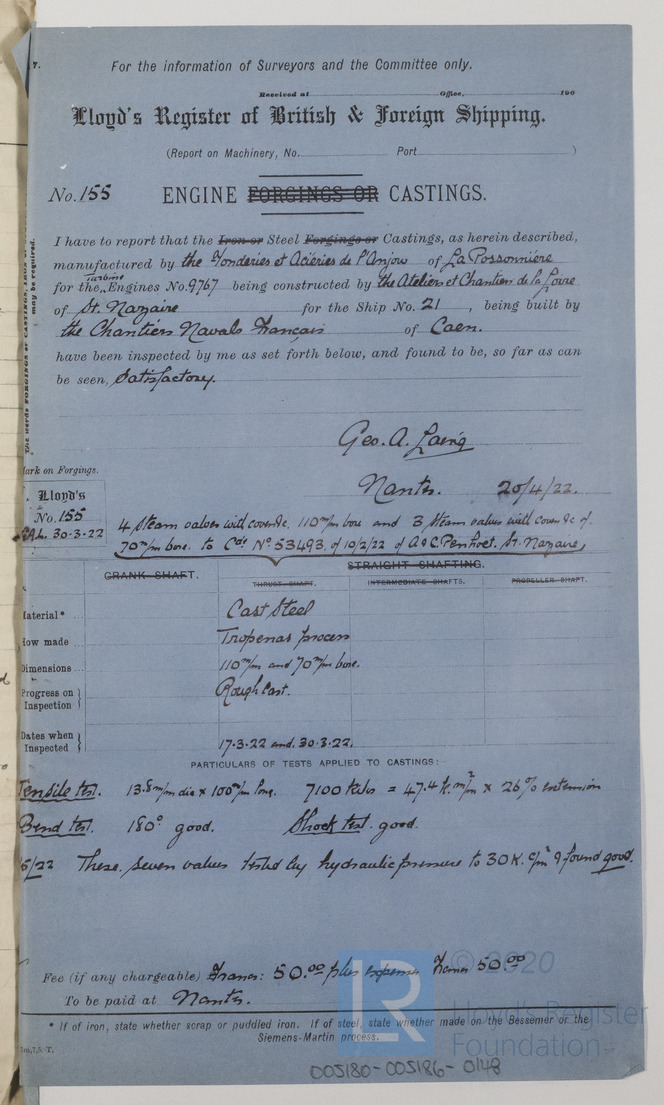 For the information of Surveyors and the Committee only.
Received at Office, 190
Lloyd's Register of British & Foreign Shipping.
(Report on Machinery, No. Port )
No. 155 ENGINE FORGINGS OR CASTINGS.
I have to report that the Iron or Steel Forgings or Castings, as herein described,
manufactured by the Fonderies et Aciéries de l'Anjou of La Possonnière
for the Turbine Engines No. 9767 being constructed by the Ateliers et Chantiers de la Loire
of St. Nazaire for the Ship No. 21, being built by
the Chantiers Navals Français of Caen.
have been inspected by me as set forth below, and found to be, so far as can
be seen, Satisfactory.
Geo. A. Laing
Nantes. 20/4/22.
Mark on Forgings.
Lloyd's
No. 155
GAL. 30.3.22
4 Steam valves with covers &c. 110 m/m bore and 3 Steam valves with covers &c of
70 m/m bore. to Cde No 53493 of 10/2/22 of A & C. Penhoet. St. Nazaire,
CRANK SHAFT. STRAIGHT SHAFTING.
THRUST SHAFT. INTERMEDIATE SHAFTS. PROPELLER SHAFT.
Material* Cast Steel
How made Tropenas process
Dimensions 110 m/m and 70 m/m bore.
Progress on Inspection Rough Cast.
Dates when Inspected 17.3.22 and 30.3.22.
PARTICULARS OF TESTS APPLIED TO CASTINGS:—
Tensile test. 13.8 m/m dia × 100 m/m long. 7100 kilos = 47.4 k. m/m² × 26% extension
Bend test. 180° good. Shock test. good.
5/22 These seven valves tested by hydraulic pressure to 30 K. c/m² & found good.
Fee (if any chargeable) Francs: 50.00 plus expenses Francs 50.00
To be paid at Nantes.
* If of iron, state whether scrap or puddled iron. If of steel, state whether made on the Bessemer or the
Siemens-Martin process.
© 2020
Lloyd's Register
Foundation
LR
005180-005186-0148